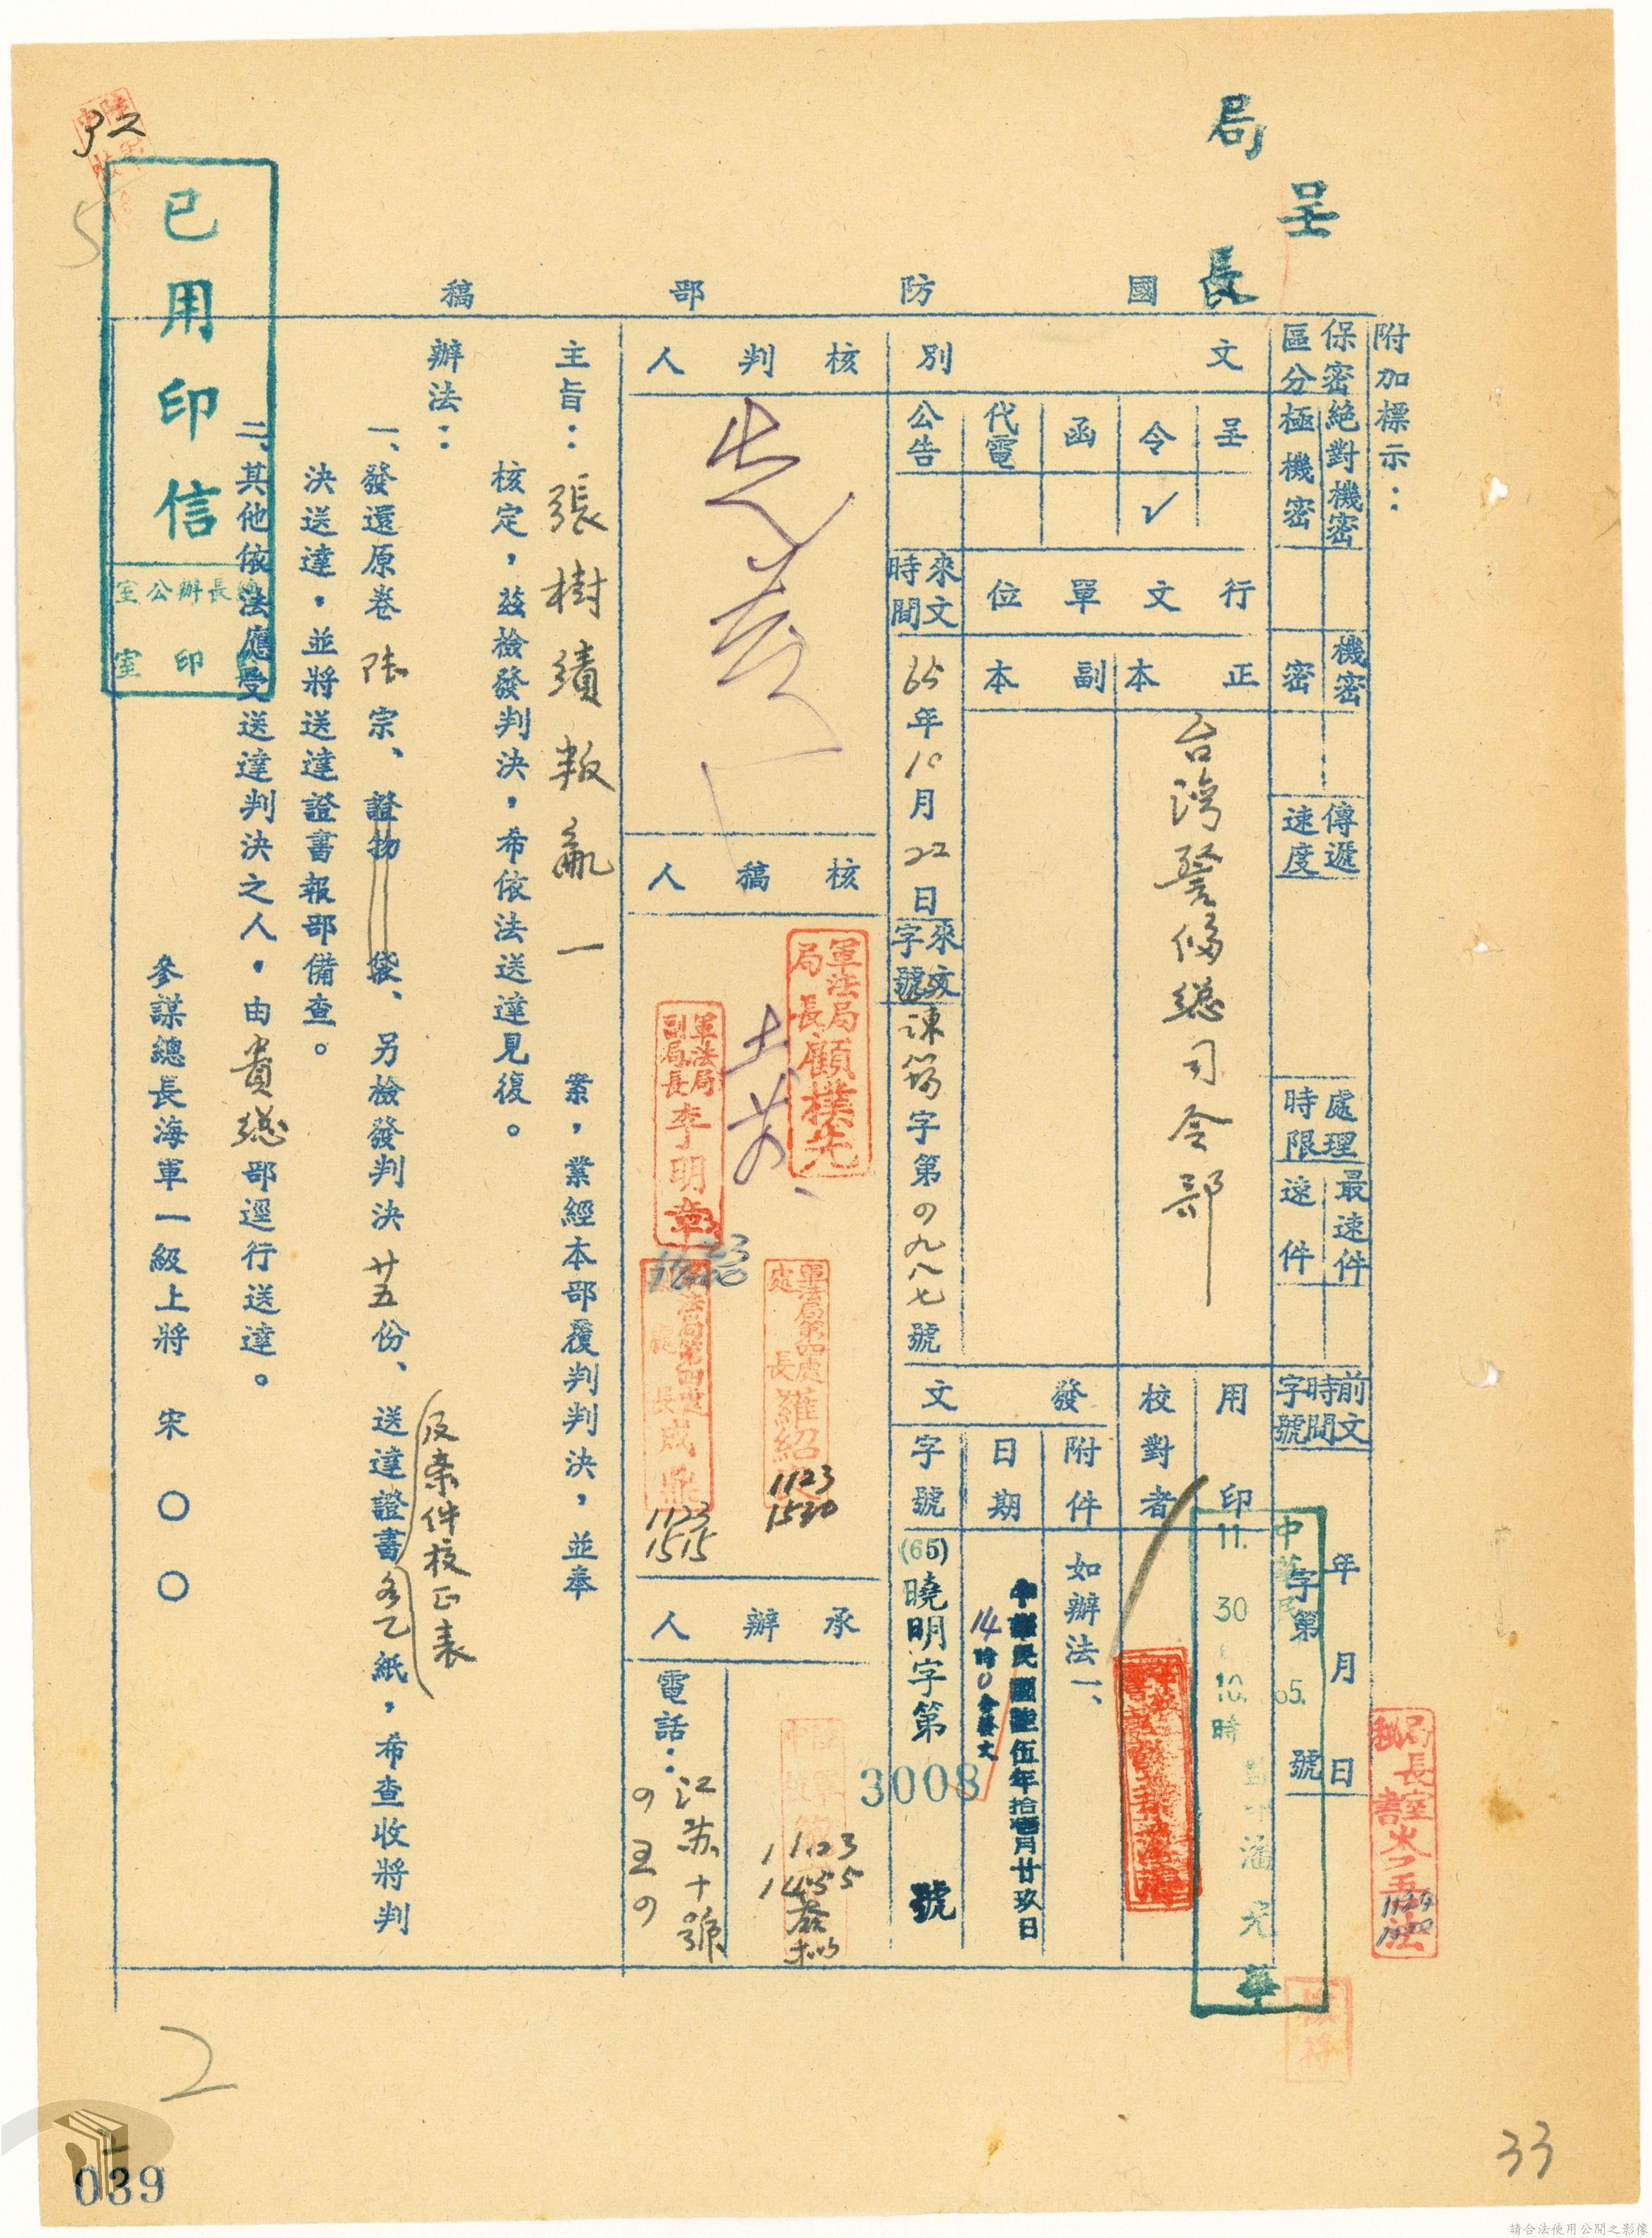 呈
局長
國防部稿
附加標示：
保密區分
絕對機密
極機密
機密
密
傳遞速度
處理時限
最速件
速件
前文時間字號
年月日
字第號
文別
呈
令 ✓
函
代電
公告
行文單位
正本
副本
台灣警備總司令部
來文時間
65年10月22日
來文字號
諫簡字第4九八七號
用印
校對者
發文
附件
如辦法一、
日期
中華民國陸伍年拾壹月廿玖日
14時0分發文
字號
(65)曉明字第3008號
核判人
核稿人
軍法局局長顧樸先
軍法局副局長李明章
軍法局第四處處長羅紹
1123
1530
1123
1515
承辦人
1123
1455
電話：江蘇十號
局長室秘書
主旨：張樹績叛亂一案，業經本部覆判判決，並奉
核定，茲檢發判決，希依法送達見復。
辦法：
一、發還原卷陸宗、證物袋、另檢發判決廿五份、送達證書各乙紙，希查收將判
及案件校正表
決送達，並將送達證書報部備查。
二、其他依法應受送達判決之人，由貴總部逕行送達。
參謀總長海軍一級上將 宋〇〇
已用印信
總長辦公室
印室
11. 30 10.時
32
5
2
33
039
請合法使用公開之影像